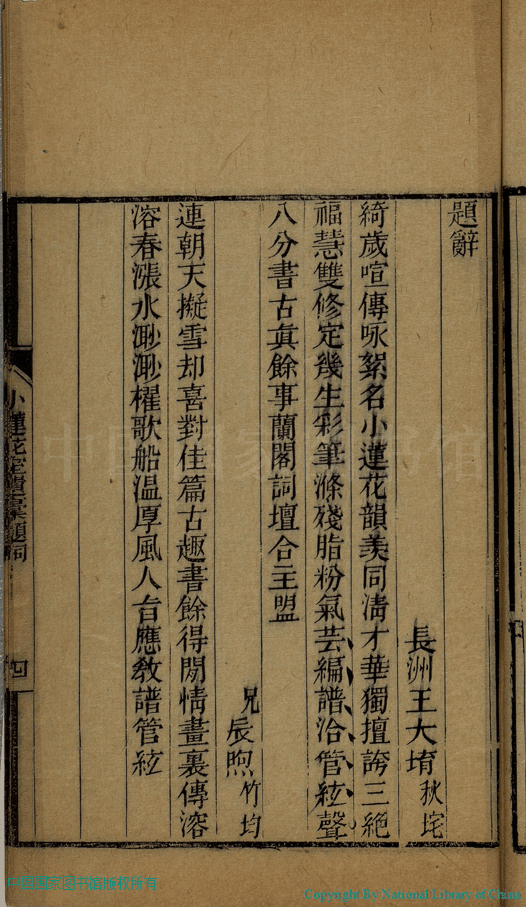 題辭
長洲王大堉秋垞
綺歲喧傳咏絮名小蓮花韻美同淸才華獨擅誇三絶
福慧雙修定幾生彩筆滌殘脂粉氣芸編譜洽管絃聲
八分書古眞餘事蘭閣詞壇合主盟
兄辰煦竹均
連朝天擬雪却喜對佳篇古趣書餘得閒情畫裏傳溶
溶春漲水渺渺櫂歌船温厚風人旨應敎譜管絃
小蓮花室
題詞
四
中国国家图书馆版权所有
Copyright By National Library of China